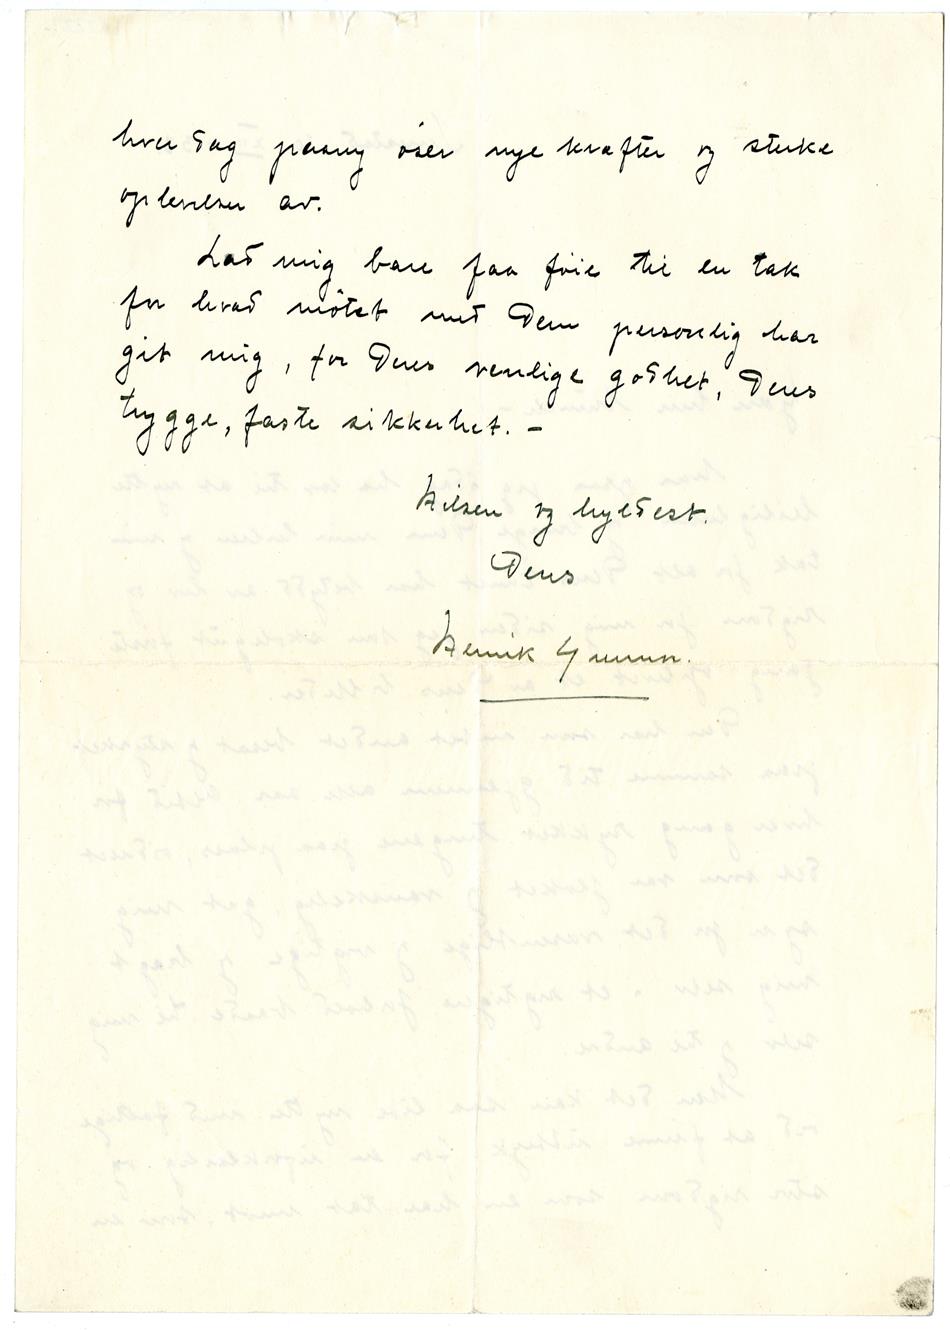 hver dag paany öser nye kræfter og sterke
oplevelser av.
Lad mig bare faa föie til en tak
for hvad mötet med Dem personlig har
git mig, for Deres venlige godhet, Deres
trygge, faste sikkerhet. –
Hilsen og hyldest.
Deres
Henrik